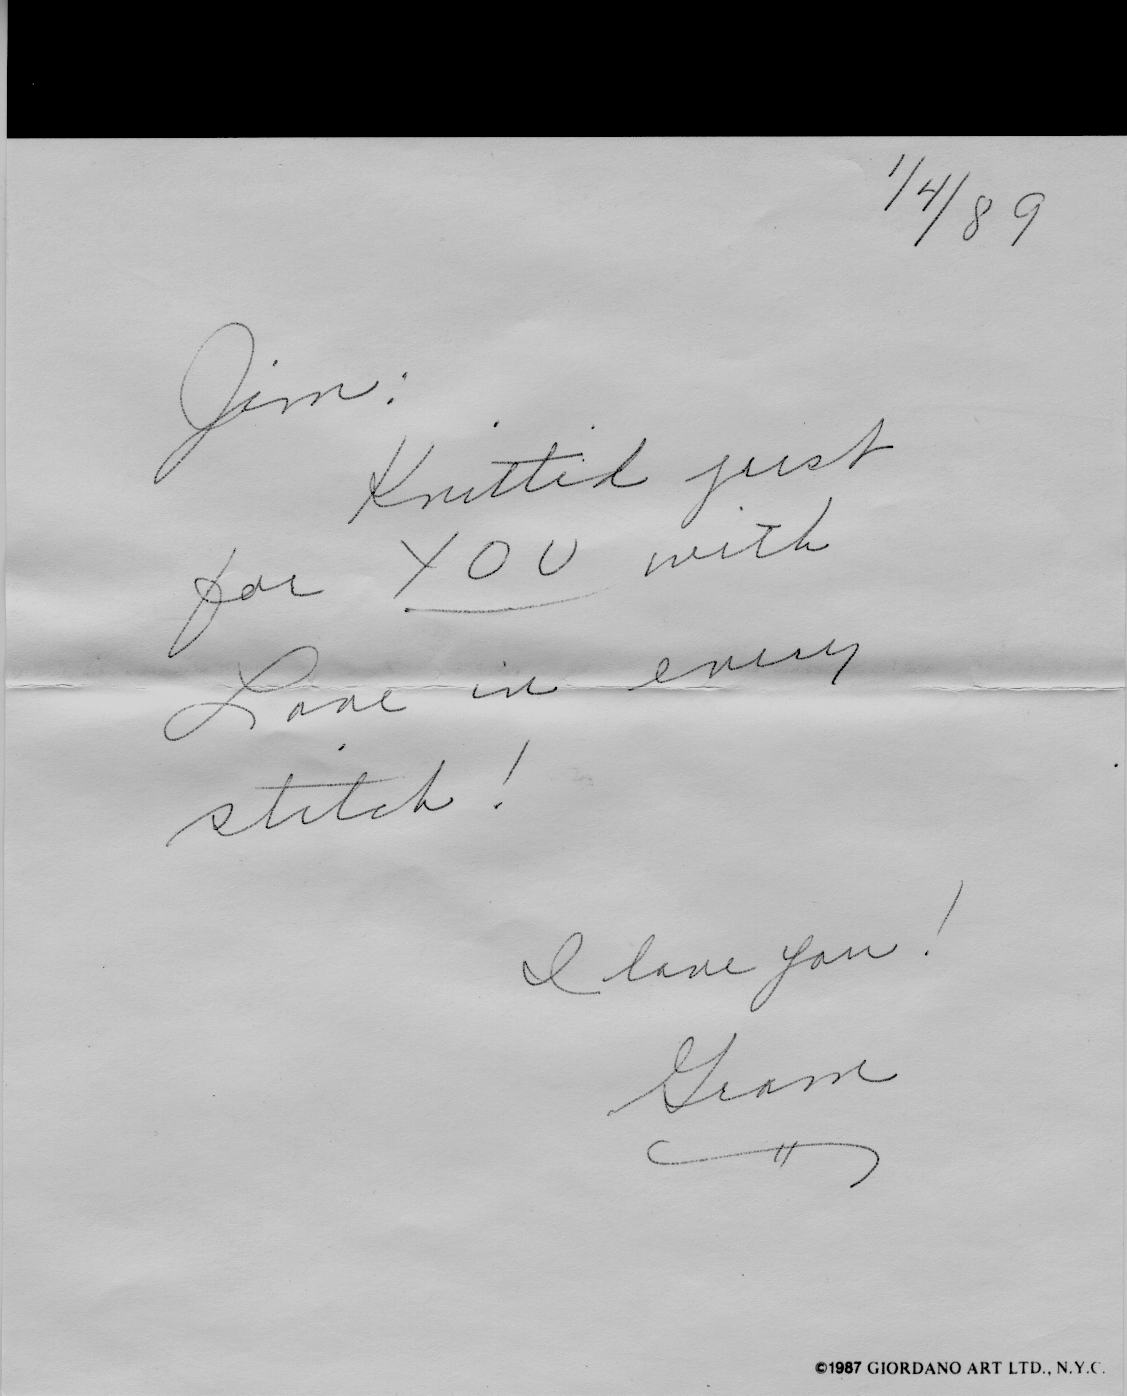 1/4/89
Jim:
Knitted just
for YOU with
Love in every
stitch!
I love you!
Gram
©1987 GIORDANO ART LTD., N.Y.C.